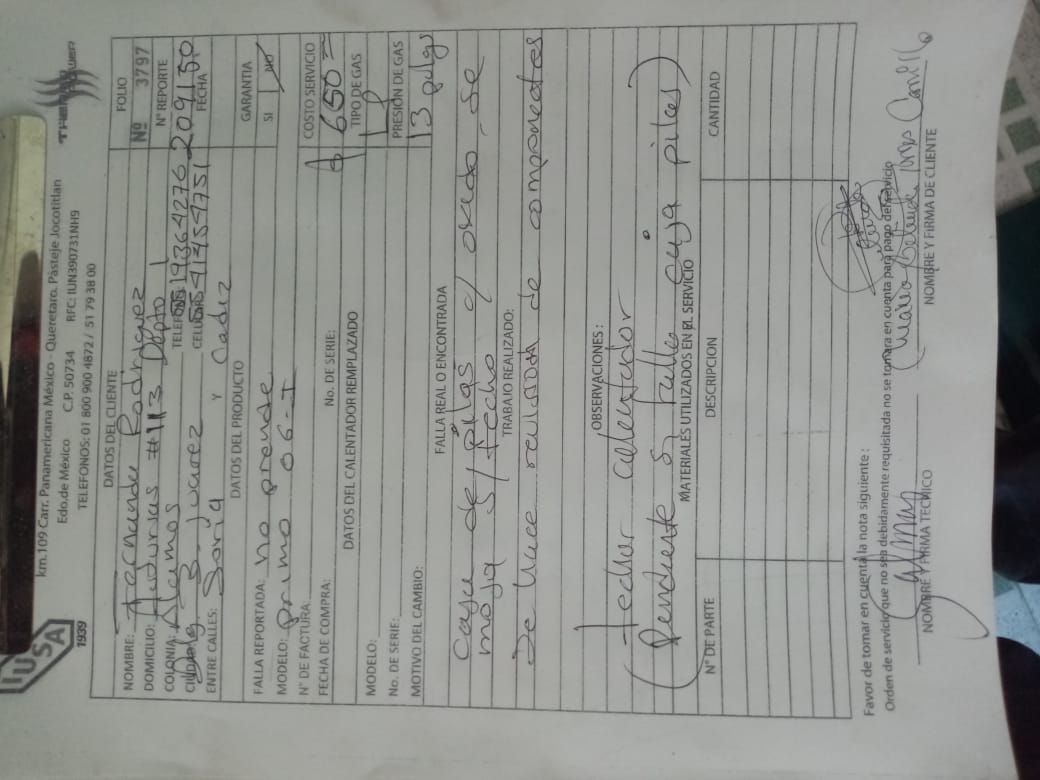 IUSA
1939
km.109 Carr. Panamericana México - Queretaro, Pásteje Jocotitlan
Edo.de México C.P. 50734 RFC: IUN390731NH9
TELEFONOS: 01 800 900 4872 / 51 79 38 00
THERMO POWER
DATOS DEL CLIENTE
FOLIO
Nº 3797
NOMBRE: Fernanda Rodriguez
DOMICILIO: Asturias #113 Depto 1
Nº REPORTE
COLONIA: Alamos
TELEFONO: 5519364276
209150
CELULAR: 5541454751
FECHA
ENTRE CALLES: Soria Y Cadiz
DATOS DEL PRODUCTO
GARANTIA
FALLA REPORTADA: no prende
SI NO
MODELO: primo 06-I
Nº DE FACTURA:
COSTO SERVICIO
$ 650
FECHA DE COMPRA: No. DE SERIE:
TIPO DE GAS
DATOS DEL CALENTADOR REMPLAZADO
MODELO:
PRESIÓN DE GAS
No. DE SERIE:
13 pulgs
MOTIVO DEL CAMBIO:
FALLA REAL O ENCONTRADA
caja de pilas c/ oxido, se
moja s/ techo
TRABAJO REALIZADO:
Se hace revision de componentes
OBSERVACIONES:
(techar calentador
Pendiente si falla caja pilas)
MATERIALES UTILIZADOS EN EL SERVICIO
Nº DE PARTE DESCRIPCION CANTIDAD
Favor de tomar en cuenta la nota siguiente:
Orden de servicio que no sea debidamente requisitada no se tomara en cuenta para pago del servicio
NOMBRE Y FIRMA TECNICO NOMBRE Y FIRMA DE CLIENTE